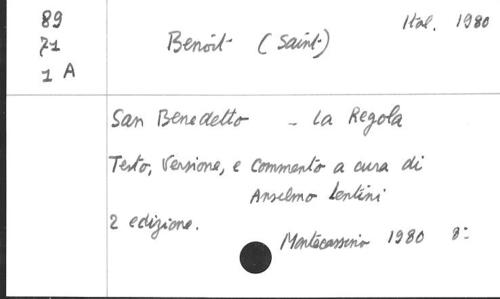 89
71
1 A
Benoît (Saint)
Ital. 1980
San Benedetto - La Regola
Testo, Versione, e commento a cura di
Anselmo Lentini
2 edizione.
Montecassino 1980 8: